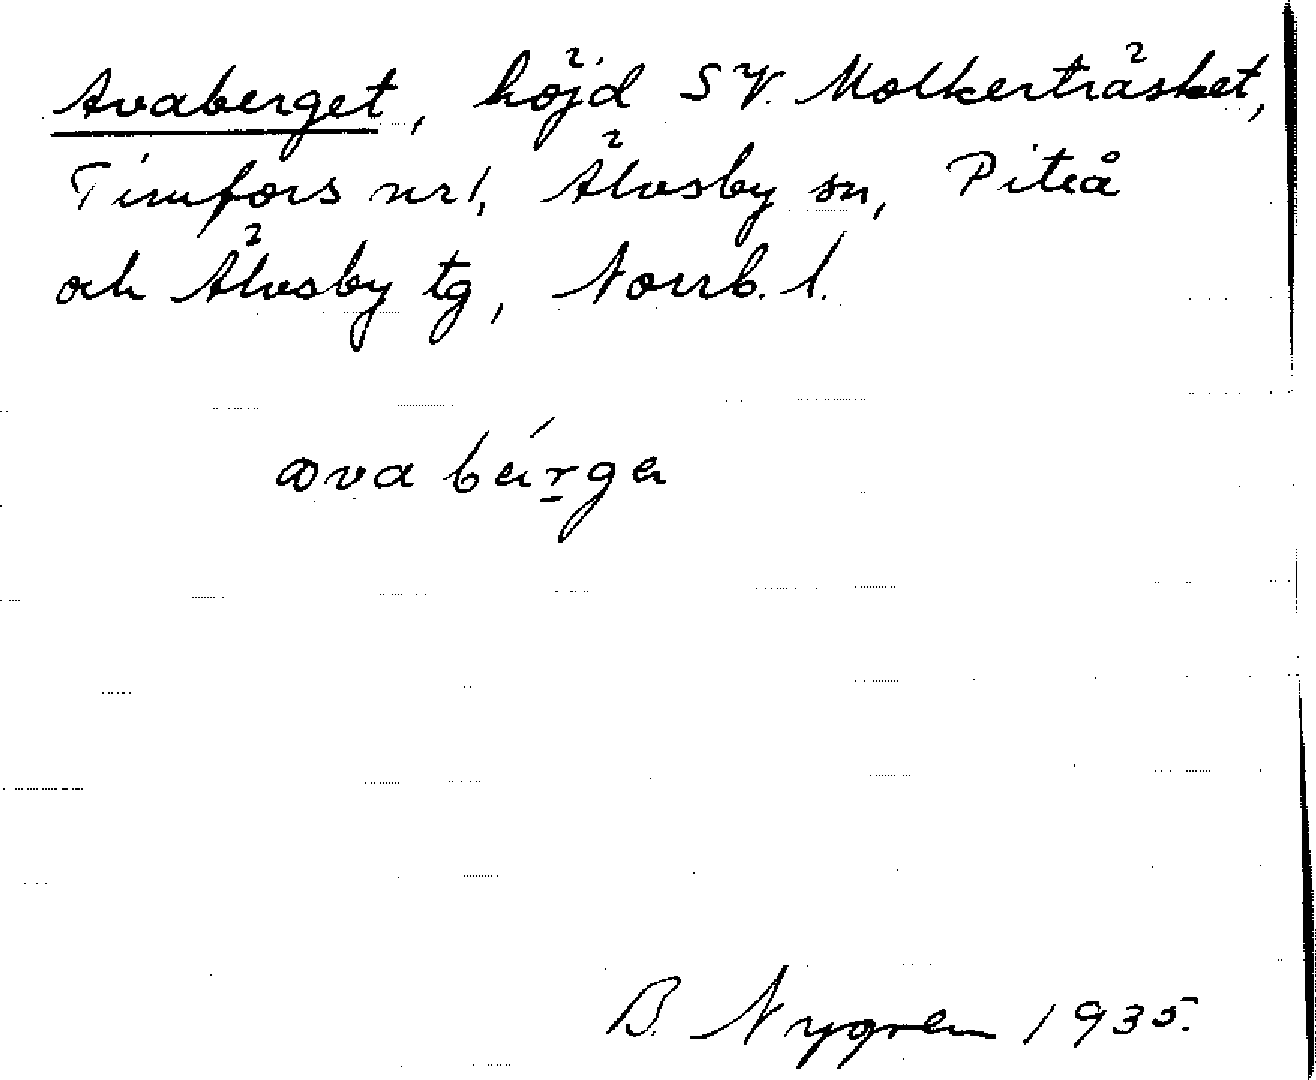 Avaberget, höjd SV. Molkerträsket,
Timfors nr 1, Älvsby sn, Piteå
och Älvsby tg, Norrb. l.
ava bérga
B. Nygren 1935.